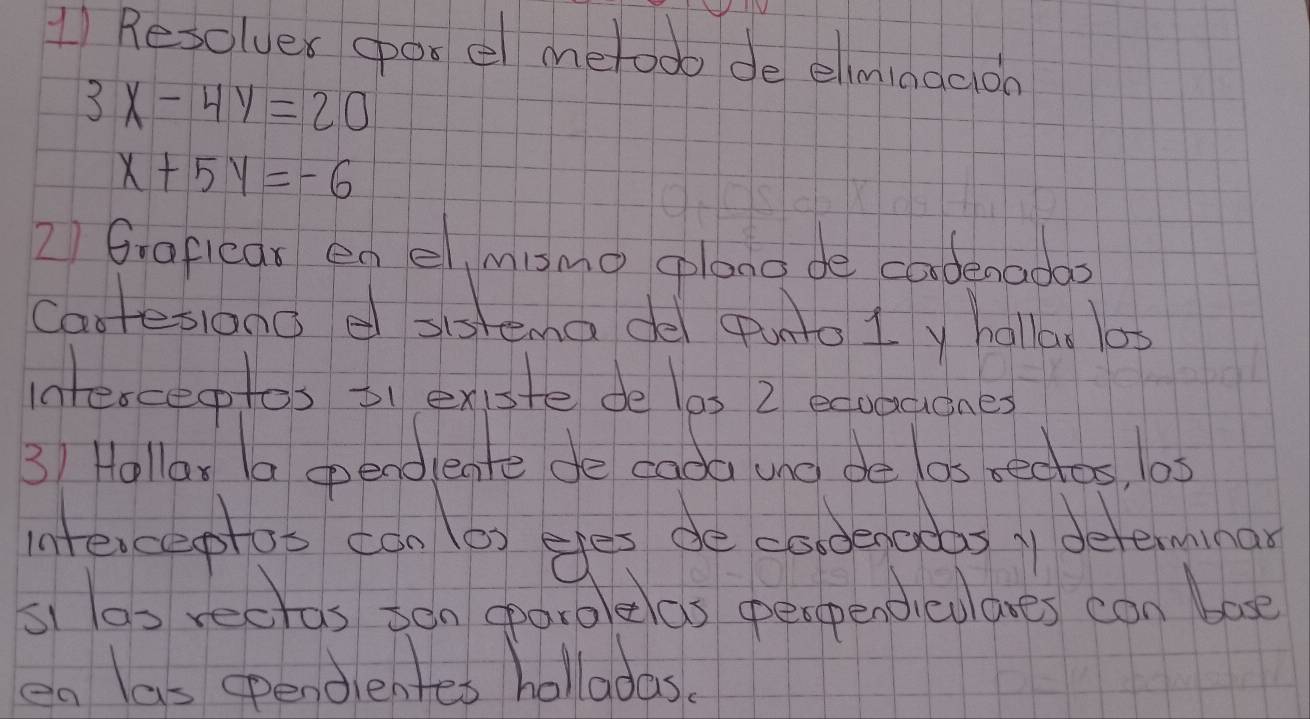 1) Resolver por el metodo de eliminación
3x - 4y = 20
x + 5y = -6
2) Graficar en el mismo plano de cordenadas
Cartesiano el sistema del punto 1 y hallar los
interceptos si existe de las 2 ecuaciones
3) Hallar la pendiente de cada una de las rectas, los
interceptos con los ejes de cordenadas y determinar
si las rectas son paralelas perpendiculares con base
en las pendientes halladas.